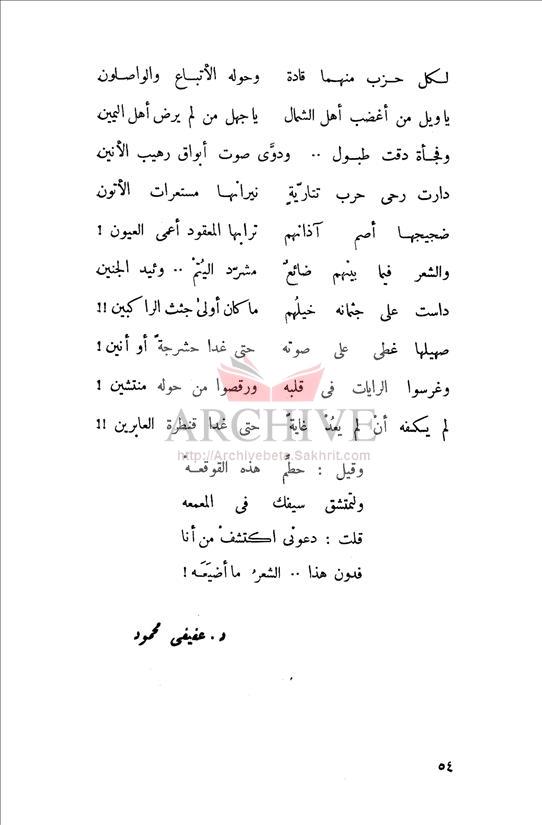 لكل حزب منهما قادة وحوله الأتباع والواصلون
ياويل من أغضب أهل الشمال ياجهل من لم يرض أهل اليمين
وفجأة دقت طبول .. ودوَّى صوت أبواق رهيب الأنين
دارت رحى حرب تتاريّةٍ نيرانها مستعرات الأتون
ضجيجها أصم آذانهم ترابها المعقود أعمى العيون !
والشعر فيما بينهم ضائعٌ مشرّد اليُتْم .. وئيد الجنين
داست على جثمانه خيلُهم ماكان أولىْ جثث الراكبين !!
صهيلها غطى على صوته حتى غدا حشرجةً أو أنين !
وغرسوا الرايات فى قلبه ورقصوا من حوله منتشين !
لم يكفه أنْ لم يعُدْ غايةً حتى غدا قنطرة العابرين !!
ARCHIVE
http://Archivebeta.Sakhrit.com
وقيل : حطِّم هذه القوقعة
ولتمتشق سيفك فى المعمعه
قلت : دعونى اكتشفْ من أنا
فدون هذا .. الشعرُ ما أضيَعَه !
د. عفيفى محمود
٥٤